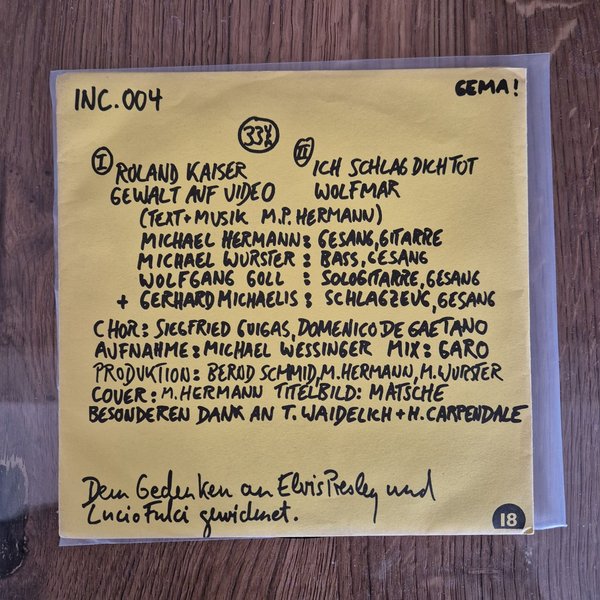 INC. 004
GEMA!
33⅓
I
ROLAND KAISER
GEWALT AUF VIDEO
II
ICH SCHLAG DICH TOT
WOLFMAR
(TEXT+MUSIK M.P. HERMANN)
MICHAEL HERMANN: GESANG, GITARRE
MICHAEL WURSTER : BASS, GESANG
WOLFGANG GOLL : SOLOGITARRE, GESANG
+ GERHARD MICHAELIS : SCHLAGZEUG, GESANG
CHOR: SIEGFRIED GUIGAS, DOMENICO DE GAETANO
AUFNAHME: MICHAEL WESSINGER MIX: GARO
PRODUKTION: BERND SCHMID, M. HERMANN, M. WURSTER
COVER: M. HERMANN TITELBILD: MATSCHE
BESONDEREN DANK AN T. WAIDELICH + H. CARPENDALE
Dem Gedenken an Elvis Presley und
Lucio Fulci gewidmet.
18